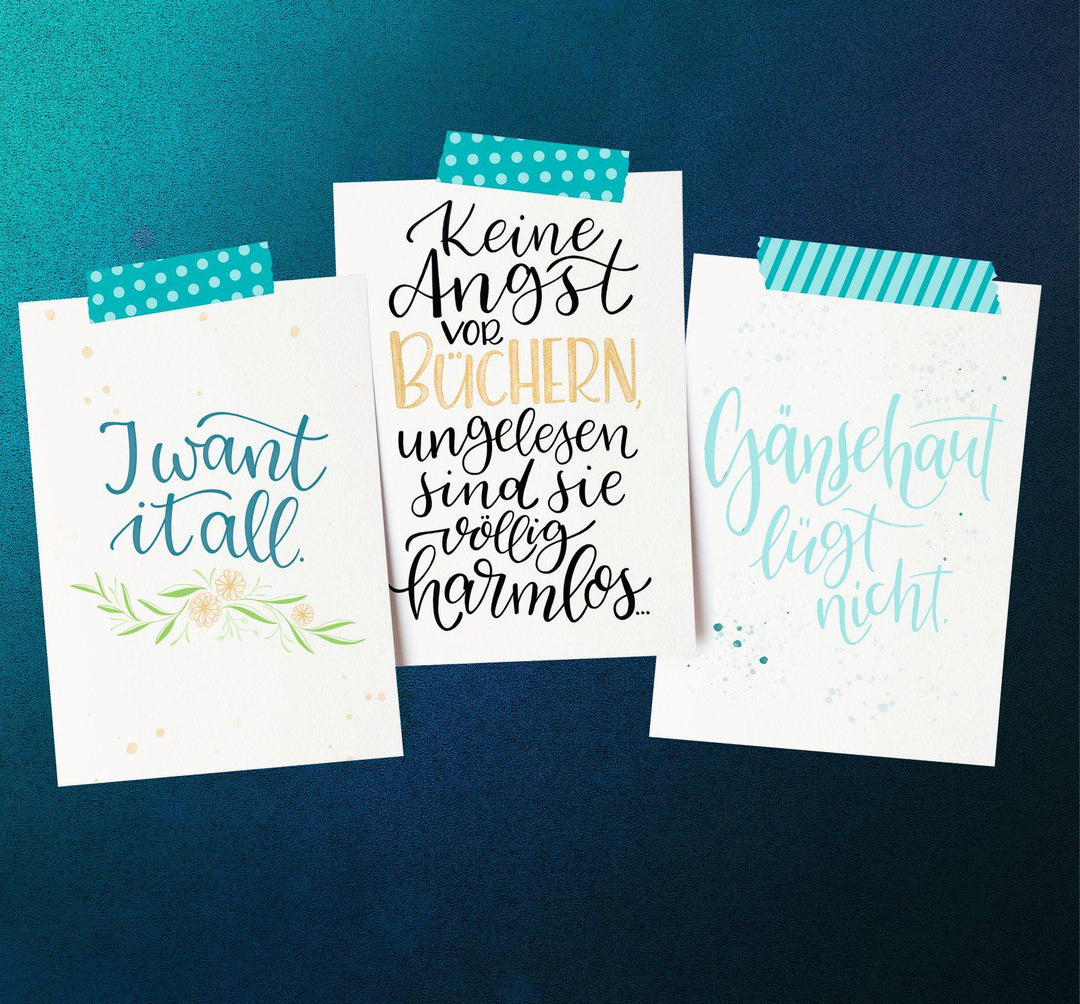 I want
it all.
Keine
Angst
vor
BÜCHERN,
ungelesen
sind sie
völlig
harmlos...
Gänsehaut
lügt
nicht.